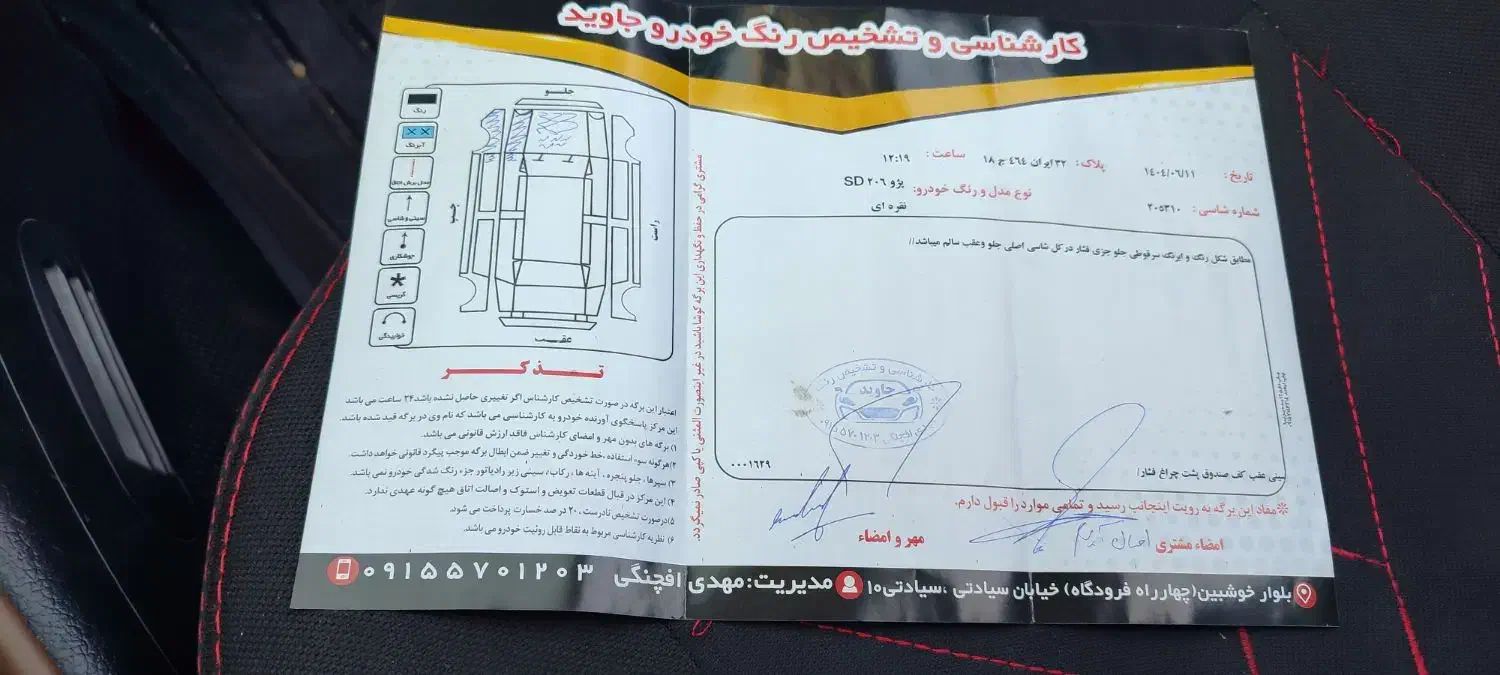 کارشناسی و تشخیص رنگ خودرو جاوید
تاریخ: ۱٤۰٤/۰٦/۱۱
پلاک: ۳۲ ایران ٤٦٤ ج ۱۸
ساعت: ۱۲:۱۹
شماره شاسی: ۲۰۵۳۱۰
نوع مدل و رنگ خودرو: پژو ۲۰۶ SD
نقره ای
مطابق شکل رنگ و ابرنگ سرقوطی جلو جزی فشار در کل شاسی اصلی جلو وعقب سالم میباشد//
سینی عقب کف صندوق پشت چراغ فشار/
۰۰۰۱٦۲۹
کارشناسی و تشخیص رنگ
جاوید
※مفاد این برگه به رویت اینجانب رسید و تمامی موارد را قبول دارم.
امضاء مشتری
مهر و امضاء
مشتری گرامی در حفظ و نگهداری این برگه کوشا باشید در غیر اینصورت المثنی یا کپی صادر نمیگردد.
جلـــو
راست
چپ
عقـــب
رنگ
آبرنگ
سینی و شاسی
جوشکاری
خوابیدگی
تـــذکـــر
اعتبار این برگه در صورت تشخیص کارشناس اگر تغییری حاصل نشده باشد ۲۴ ساعت می باشد
این مرکز پاسخگوی آورنده خودرو به کارشناسی می باشد که نام وی در برگه قید شده باشد.
۱) برگه های بدون مهر و امضای کارشناس فاقد ارزش قانونی می باشد.
۲)هرگونه سوء استفاده ،خط خوردگی و تغییر ضمن ابطال برگه موجب پیگرد قانونی خواهد داشت.
۳) سپرها، جلو پنجره، آینه ها، رکاب، سینی زیر رادیاتور جزء رنگ شدگی خودرو نمی باشد.
۴) این مرکز در قبال قطعات تعویض و استوک و اصالت اتاق هیچ گونه عهدی ندارد.
۵)درصورت تشخیص نادرست، ۲۰ در صد خسارت پرداخت می شود.
۶) نظریه کارشناسی مربوط به نقاط قابل روئیت خودرو می باشد.
بلوار خوشبین(چهارراه فرودگاه) خیابان سیادتی ،سیادتی۱۰
مدیریت: مهدی افچنگی
۰۹۱۵۵۷۰۱۲۰۳